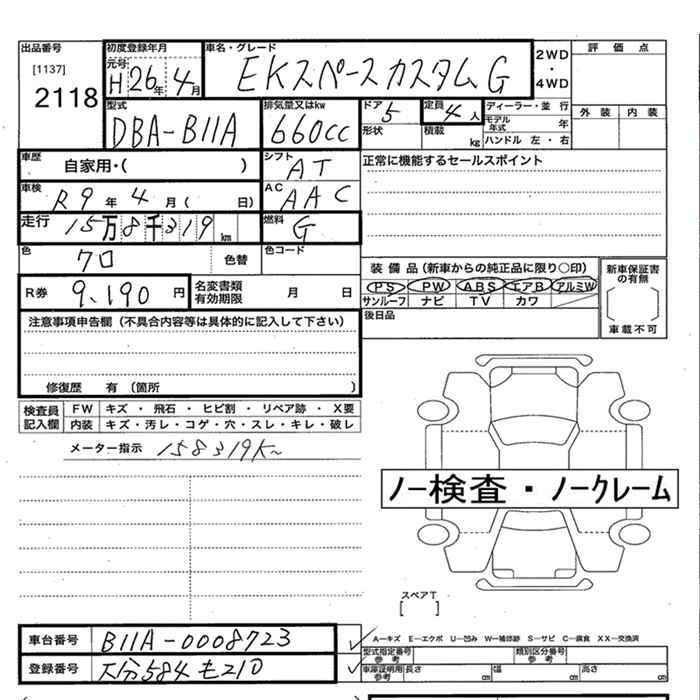 出品番号
[1137]
2118
初度登録年月
元号 H 26年 4月
車名・グレード
EKスペースカスタムG
2WD
・
4WD
評価点
外装 内装
型式
DBA-B11A
排気量又はkw
660cc
ドア 5
形状
定員 4人
積載 kg
ディーラー・並行
モデル年式 年
ハンドル 左・右
車歴 自家用・( )
シフト AT
正常に機能するセールスポイント
車検 R9年 4月( 日)
AC AAC
走行 15万8千319km
燃料 G
色 クロ 色替
色コード
装備品(新車からの純正品に限り○印)
PS PW ABS エアB アルミW
サンルーフ ナビ TV カワ
新車保証書の有無
[ ]
車載不可
R券 9,190円
名変書類有効期限 月 日
後日品
注意事項申告欄(不具合内容等は具体的に記入して下さい)
修復歴 有 (箇所 )
検査員記入欄
FW キズ・飛石・ヒビ割・リペア跡・X要
内装 キズ・汚レ・コゲ・穴・スレ・キレ・破レ
メーター指示 158319K
ノー検査・ノークレーム
スペアT
[ ]
車台番号 B11A-0008723
登録番号 大分584も210
A-キズ E-エクボ U-凹み W-補修跡 S-サビ C-腐食 XX-交換済
型式指定番号 参考
類別区分番号 参考
車庫証明用 参考 長さ cm 幅 cm 高さ cm